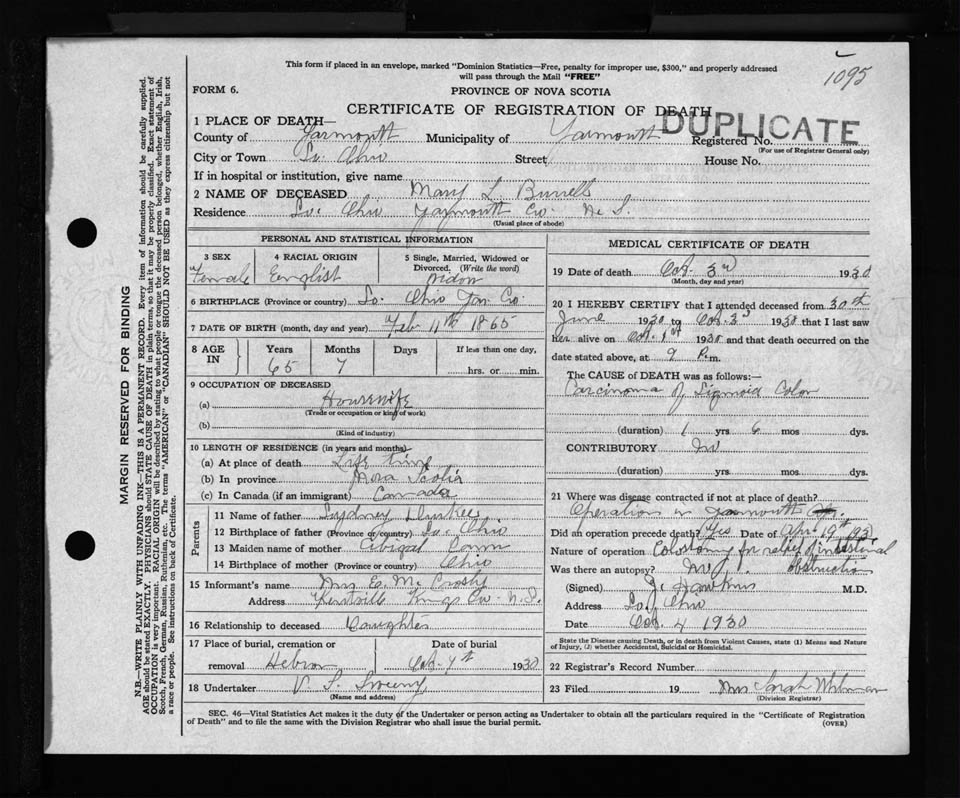 1095
This form if placed in an envelope, marked "Dominion Statistics—Free, penalty for improper use, $300," and properly addressed
will pass through the Mail "FREE"
FORM 6. PROVINCE OF NOVA SCOTIA
CERTIFICATE OF REGISTRATION OF DEATH
DUPLICATE
1 PLACE OF DEATH—
County of Yarmouth Municipality of Yarmouth Registered No.
(For use of Registrar General only)
City or Town So. Ohio Street House No.
If in hospital or institution, give name
2 NAME OF DECEASED Mary L. Burrell
Residence So. Ohio Yarmouth Co. N. S.
(Usual place of abode)
PERSONAL AND STATISTICAL INFORMATION
3 SEX 4 RACIAL ORIGIN 5 Single, Married, Widowed or
Divorced. (Write the word)
Female English Widow
6 BIRTHPLACE (Province or country) So. Ohio Yar. Co.
7 DATE OF BIRTH (month, day and year) Feb 11th 1865
8 AGE IN Years Months Days If less than one day,
65 7 hrs. or min.
9 OCCUPATION OF DECEASED
(a) Housewife
(Trade or occupation or kind of work)
(b)
(Kind of industry)
10 LENGTH OF RESIDENCE (in years and months)
(a) At place of death Life time
(b) In province Nova Scotia
(c) In Canada (if an immigrant) Canada
Parents
11 Name of father Sydney Durkee
12 Birthplace of father (Province or country) So. Ohio
13 Maiden name of mother Abigal
14 Birthplace of mother (Province or country) Ohio
15 Informant's name Mrs E. Mc Crosby
Address Kentville Kings Co. N.S.
16 Relationship to deceased Daughter
17 Place of burial, cremation or Date of burial
removal Hebron Oct. 7th 1930
18 Undertaker V. S. Sweeny
(Name and address)
MEDICAL CERTIFICATE OF DEATH
19 Date of death Oct. 3rd 1930
(Month, day and year)
20 I HEREBY CERTIFY that I attended deceased from 30th
June 1930 to Oct. 3rd 1930 that I last saw
her alive on Oct. 1st 1930 and that death occurred on the
date stated above, at 9 P.m.
The CAUSE of DEATH was as follows:—
Carcinoma of Sigmoid Colon
(duration) 1 yrs 6 mos dys.
CONTRIBUTORY No
(duration) yrs. mos. dys.
21 Where was disease contracted if not at place of death?
Operation in Yarmouth
Did an operation precede death? Yes Date of Apr. 19th
Nature of operation Colostomy for relief of intestinal
Was there an autopsy? No obstruction
(Signed) J. Hawkins M.D.
Address So. Ohio
Date Oct. 4 1930
State the Disease causing Death, or in death from Violent Causes, state (1) Means and Nature
of Injury, and (2) whether Accidental, Suicidal or Homicidal.
22 Registrar's Record Number
23 Filed 19 Mrs Sarah Whitman
(Division Registrar)
SEC. 46—Vital Statistics Act makes it the duty of the Undertaker or person acting as Undertaker to obtain all the particulars required in the "Certificate of Registration
of Death" and to file the same with the Division Registrar who shall issue the burial permit. (OVER)
MARGIN RESERVED FOR BINDING
N.B.—WRITE PLAINLY WITH UNFADING INK—THIS IS A PERMANENT RECORD. Every item of information should be carefully supplied.
AGE should be stated EXACTLY. PHYSICIANS should STATE CAUSE OF DEATH in plain terms, so that it may be properly classified. Exact statement of
OCCUPATION is very important. RACIAL ORIGIN will be described by stating to what people or tongue the deceased person belonged, whether English, Irish,
Scotch, French, German, Russian, Ruthenian, etc. The terms "AMERICAN" or "CANADIAN" SHOULD NOT BE USED as they express citizenship but not
a race or people. See instructions on back of Certificate.